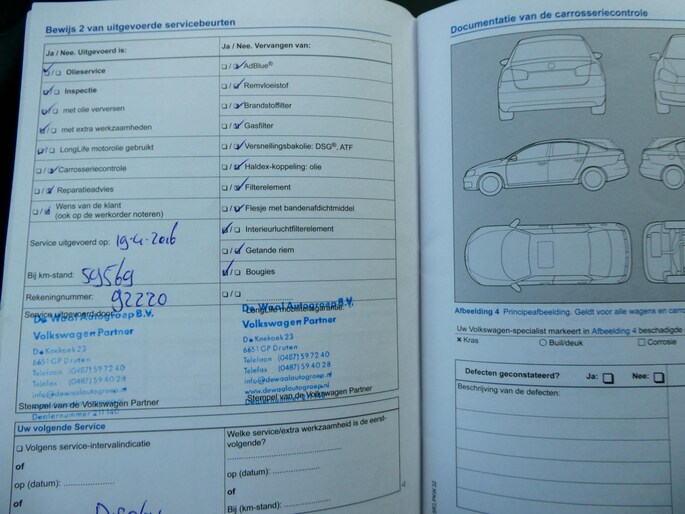 Bewijs 2 van uitgevoerde servicebeurten
Ja / Nee. Uitgevoerd is:
☑/☐ Olieservice
☑/☐ Inspectie
☑/☐ met olie verversen
☑/☐ met extra werkzaamheden
☑/☐ LongLife motorolie gebruikt
☐/☑ Carrosseriecontrole
☐/☑ Reparatieadvies
☐/☑ Wens van de klant
(ook op de werkorder noteren)
Service uitgevoerd op: 19-4-2016
Bij km-stand: 59569
Rekeningnummer: 92220
Service uitgevoerd door:
De Waal Autogroep B.V.
Volkswagen Partner
De Koekoek 23
6651 GP Druten
Telefoon (0487) 59 72 40
Telefax (0487) 59 40 28
info@dewaalautogroep.nl
www.dewaalautogroep.nl
Stempel van de Volkswagen Partner
Dealernummer 211140
Ja / Nee. Vervangen van:
☐/☑ AdBlue®
☐/☑ Remvloeistof
☐/☑ Brandstoffilter
☐/☑ Gasfilter
☐/☑ Versnellingsbakolie: DSG®, ATF
☐/☑ Haldex-koppeling: olie
☐/☑ Filterelement
☐/☑ Flesje met bandenafdichtmiddel
☑/☐ Interieurluchtfilterelement
☐/☑ Getande riem
☑/☐ Bougies
☐/☐
LongLife mobiliteitsgarantie:
De Waal Autogroep B.V.
Volkswagen Partner
De Koekoek 23
6651 GP Druten
Telefoon (0487) 59 72 40
Telefax (0487) 59 40 28
info@dewaalautogroep.nl
www.dewaalautogroep.nl
Stempel van de Volkswagen Partner
Uw volgende Service
☐ Volgens service-intervalindicatie
of
op (datum): ....................
of
Welke service/extra werkzaamheid is de eerst-
volgende?
op (datum): ....................
of
Bij (km-stand): ....................
Documentatie van de carrosseriecontrole
Afbeelding 4 Principeafbeelding. Geldt voor alle wagens en
Uw Volkswagen-specialist markeert in Afbeelding 4 beschadigde
× Kras ○ Buil/deuk ☐ Corrosie
Defecten geconstateerd? Ja: ☐ Nee: ☐
Beschrijving van de defecten: